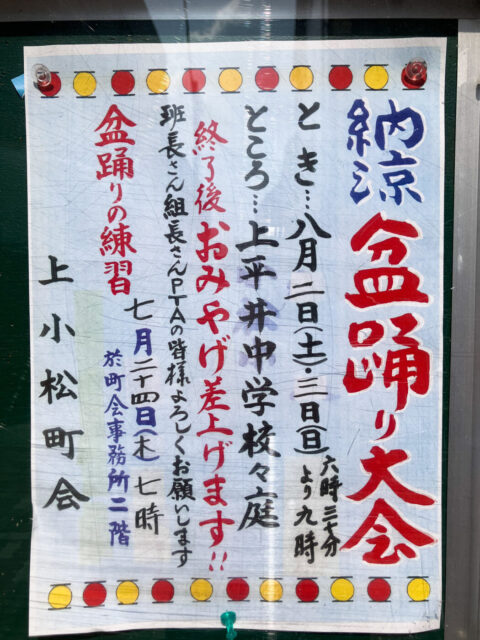 納涼 盆踊り大会
とき…八月二日(土)・三日(日) 六時三十分
より九時
ところ…上平井中学校々庭
終了後おみやげ差上げます!!
班長さん組長さんPTAの皆様よろしくお願いします
盆踊りの練習 七月二十四日(木)七時
於町会事務所二階
上小松町会